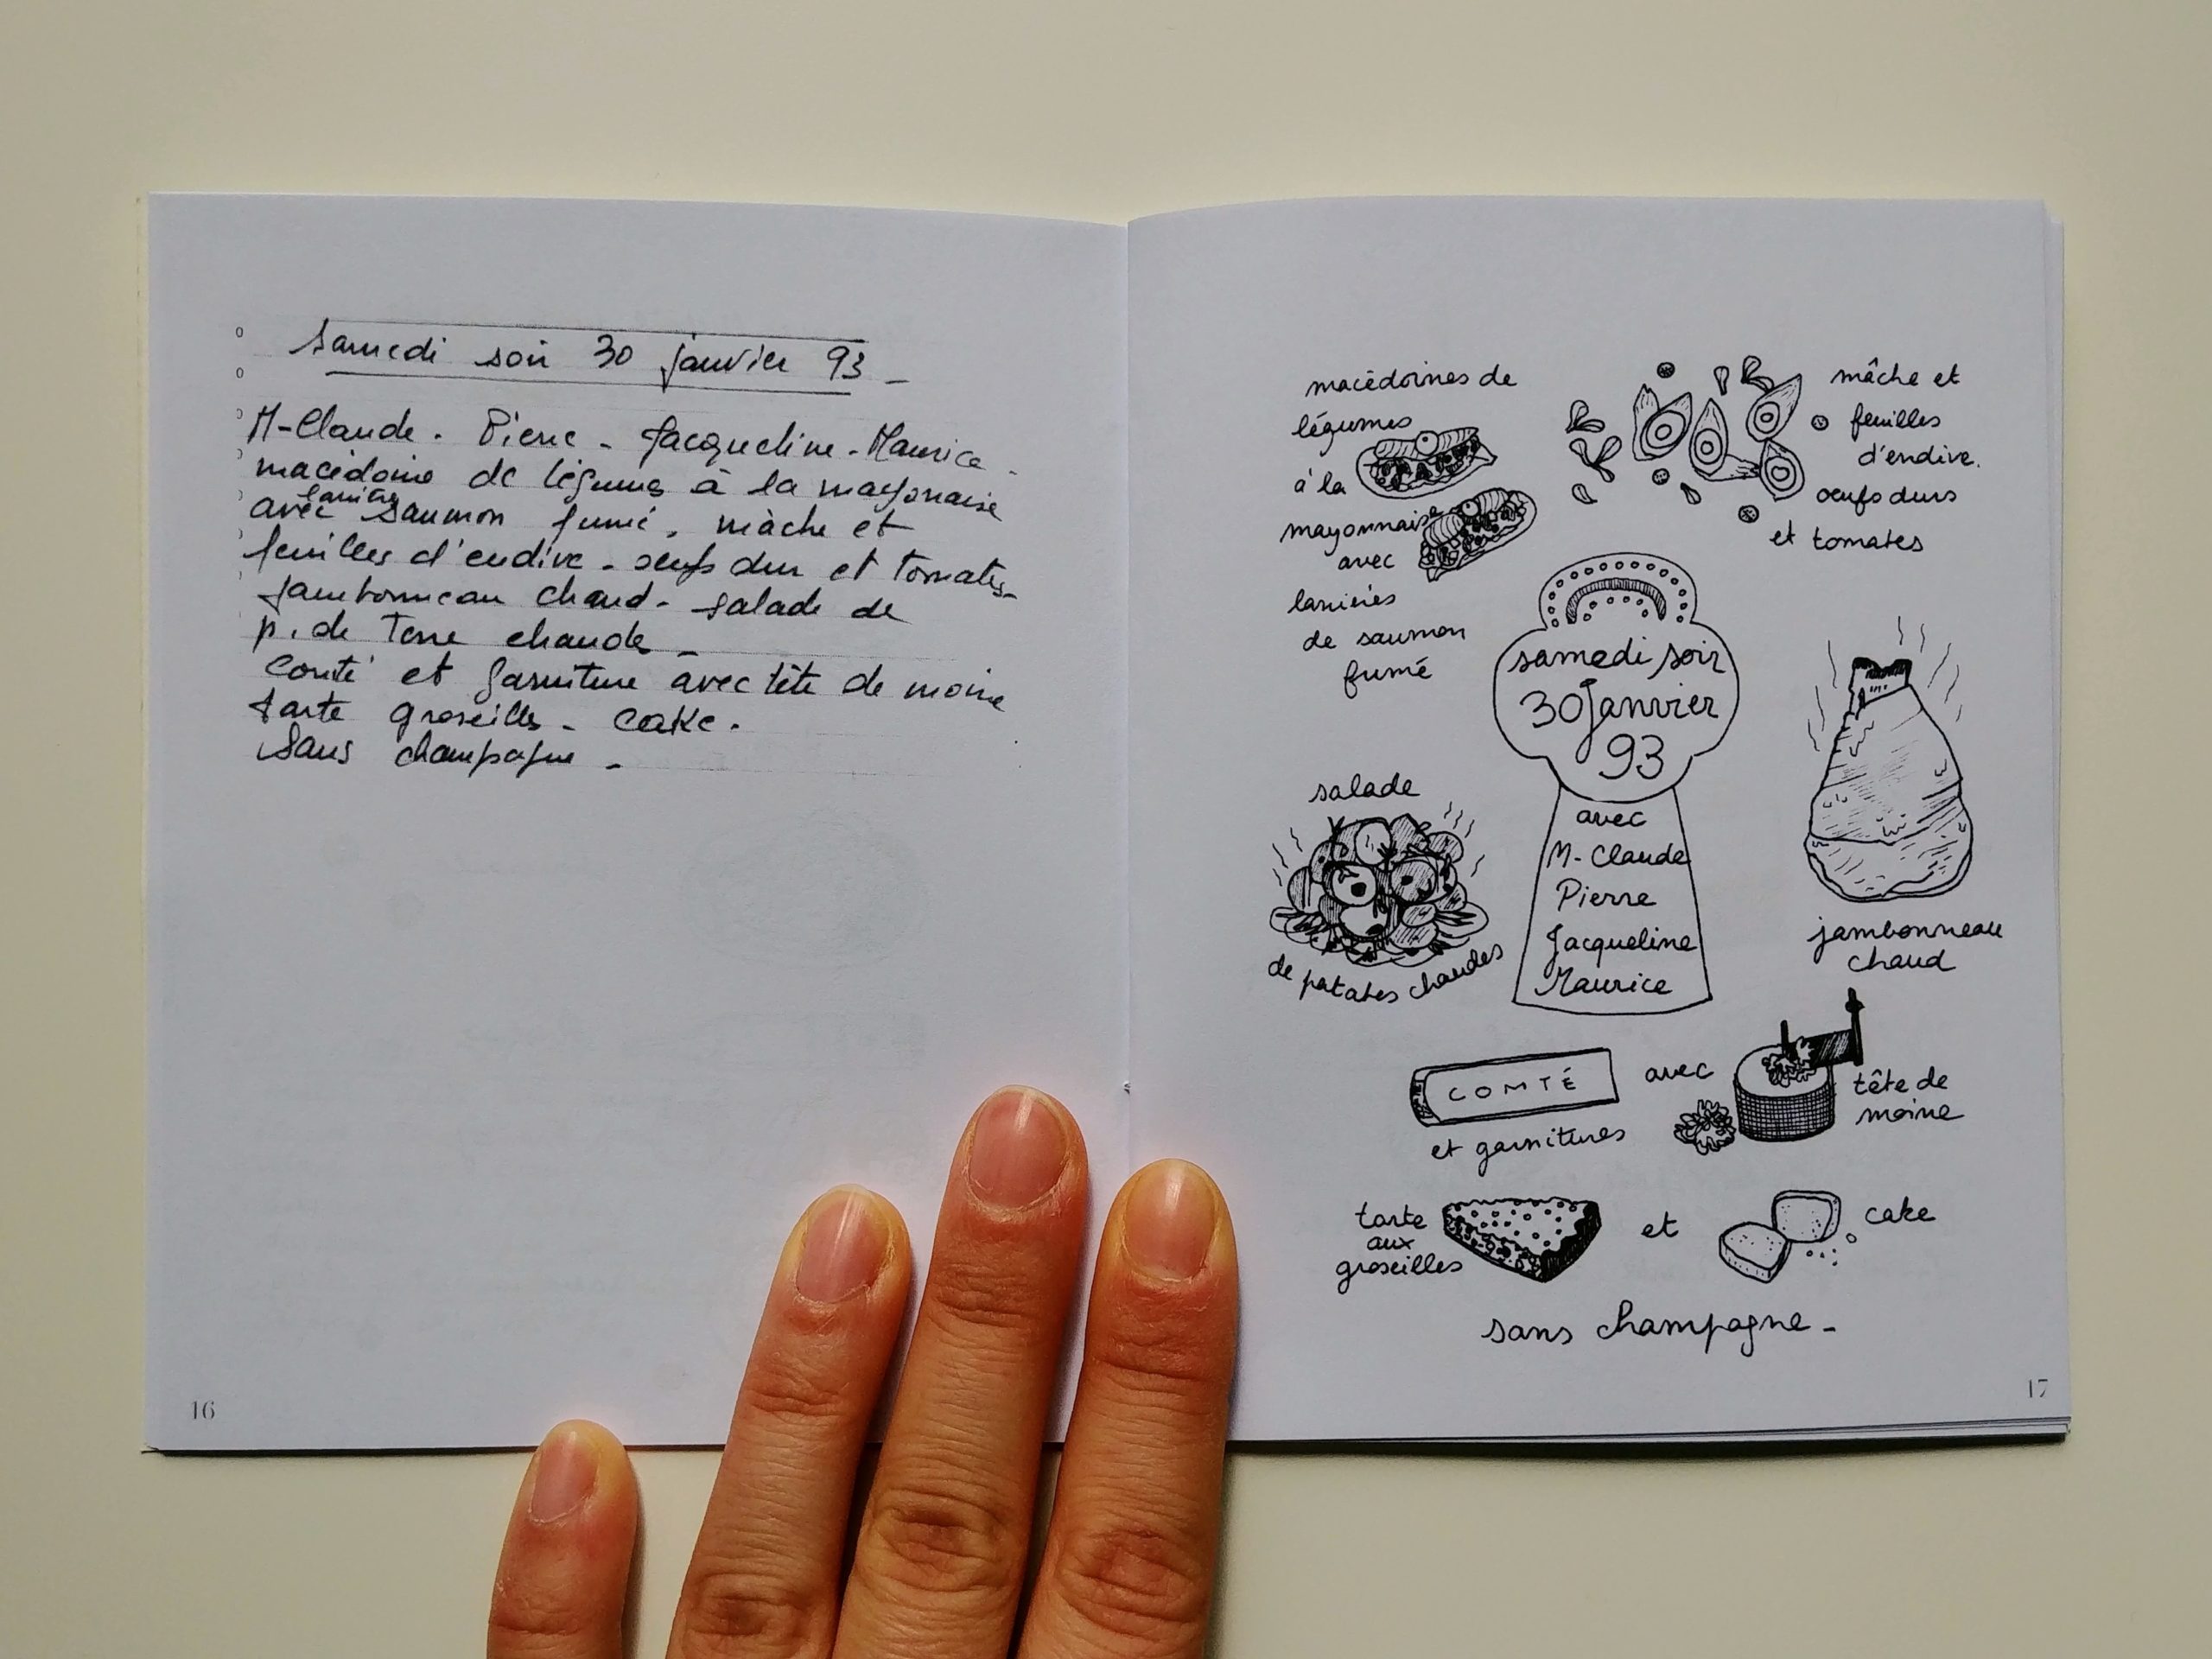 Samedi soir 30 janvier 93 -
M-Claude. Pierre - Jacqueline - Maurice -
macédoine de légumes à la mayonaise
lanières
avec saumon fumé, mâche et
feuilles d'endive - oeufs dur et tomates -
jambonneau chaud - salade de
p. de terre chaude -
Comté et garniture avec tête de moine
tarte groseilles - Cake.
Sans champagne -
16
macédoines de
légumes
à la
mayonnaise
avec
lanières
de saumon
fumé
mâche et
feuilles
d'endive.
oeufs durs
et tomates
samedi soir
30 Janvier
93
avec
M-Claude
Pierre
Jacqueline
Maurice
salade
de patates chaudes
jambonneau
chaud
COMTÉ
et garnitures
avec
tête de
moine
tarte
aux
groseilles
et
cake
sans champagne -
17